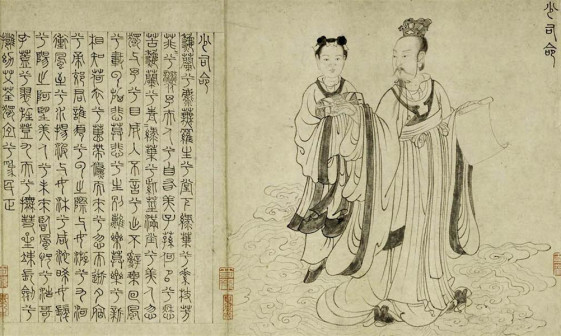 少司命
少司命
秋蘭兮麋蕪羅生兮堂下綠葉兮素枝芳
菲菲兮襲予夫人兮自有美子蓀何以兮愁
苦秋蘭兮青青綠葉兮紫莖滿堂兮美人忽
獨與余兮目成入不言兮出不辭乘回風
兮載雲旗悲莫悲兮生別離樂莫樂兮新
相知荷衣兮蕙帶儵而來兮忽而逝夕宿
兮帝郊君誰須兮雲之際與女遊兮九河
衝風至兮水揚波與女沐兮咸池晞女髮
兮陽之阿望美人兮未來臨風怳兮浩歌
孔蓋兮翠旌登九天兮撫彗星竦長劍兮
擁幼艾荃獨宜兮爲民正